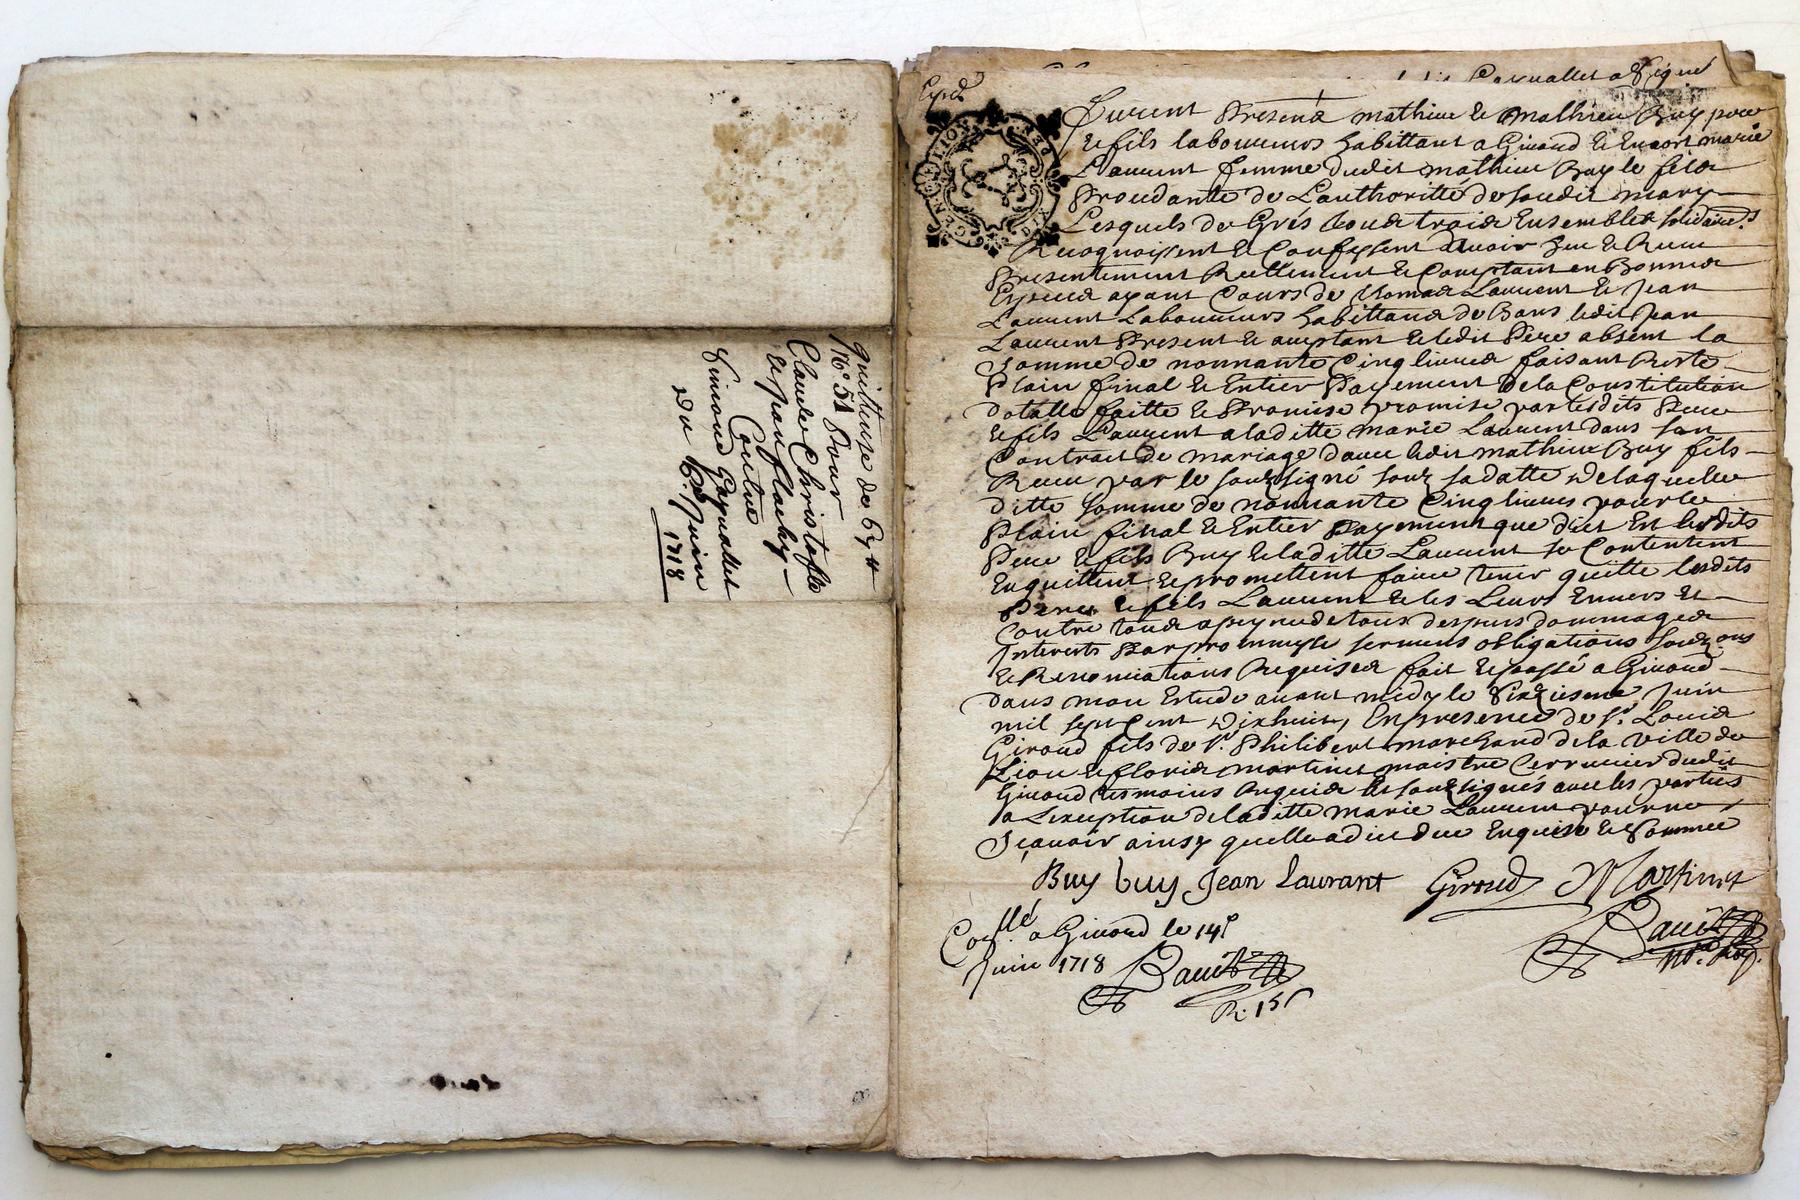 quittance de 65 ₶
No. 51 pour
Claude Christofle
et Jean flachy
Contre
Simond Gaynallet
Du 6e. Juin
1718
Expdé
a signé
GEN DE LYON
Furent Presens mathieu et mathieu Buy pere
et fils laboureurs habittant a Givord et Encort marie
Laurent femme dudit mathieu Buy le fils
Proceddante de Lauthoritté de sondit mary
Lesquels de Grés tous trois Ensembles solidairemt
Recognoissent et Confessent avoir Heu et Receu
Presentement Reellement et Comptant en Bonnes
Especes ayant Cours de thomas Laurent et Jean
Laurent Laboureurs habittans de Bans ledit Jean
Laurent Present et acceptant et ledit Pere absent la
somme de nonnante Cinq livres faisant Reste
Plain final et Entier Payement de la Constitution
dotalle faitte et Promise promise par lesdits Pere
et fils Laurent a laditte marie Laurent dans son
Contrat de mariage davec ledit mathieu Buy fils
Receu par le soubsigné soubz sa datte de laquelle
ditte somme de nonnante Cinq livres pour le
Plain final et Entier Payement que dict Est lesdits
Pere et fils Buy et laditte Laurent se Contentent
En quittent et promettent faire tenir quitte lesdits
Pere et fils Laurent et les Leurs Envers et
Contre tous a peyne de tous despens dommages
Interests Par promesse serment obligations soubz ons
et Renonciations Requises fait et passé a Givord
dans mon Estude avant midy le Sixziesme Juin
mil sept Cent dixhuit, En presence de sr. Louis
Giroud fils de sr. Philibert marchand de la ville de
Lion et floris martinet maistre Cerrurier dudit
Givord tesmoins Requis et soubzsignés avec les parties
a Lexception de laditte marie Laurent pour ne
Sçavoir ainsy quelle a dit due Enquise et Sommée
Buy buy Jean Laurant Giroud Martinet
Conllé a Givord le 14e
Juin 1718
R. 13s
no. Roy.